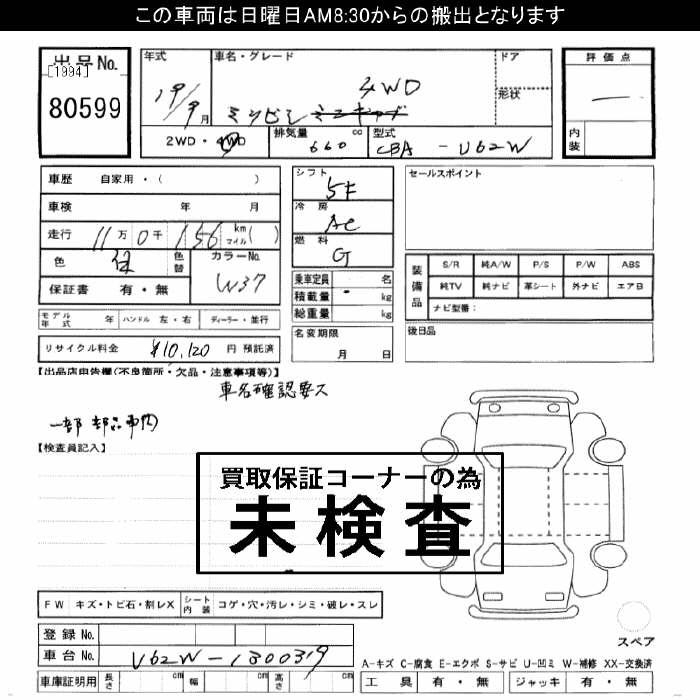 この車両は日曜日AM8:30からの搬出となります
出品No. 年式 車名・グレード ドア 評価点
[1994] 4WD
80599 19/9月 ミツビシ ミニキャブ 形状 —
2WD・4WD 排気量 660 cc 型式 CBA - U62W 内装
車歴 自家用・( ) シフト 5F セールスポイント
車検 年 月 冷房 AC
走行 11万0千156 km マイル( ) 燃料 G
色 白 色替 カラーNo. W37
装備品 S/R 純A/W P/S P/W ABS
保証書 有・無 乗車定員 名 純TV 純ナビ 革シート 外ナビ エアB
積載量 - kg ナビ型番:
モデル年式 年 ハンドル 左・右 ディーラー・並行 総重量 kg 後日品
リサイクル料金 ¥10,120 円 預託済 名変期限 月 日
【出品店申告欄(不良箇所・欠品・注意事項等)】
車名確認要ス
一部 部品車内
【検査員記入】
買取保証コーナーの為
未検査
FW キズ・トビ石・割レX シート内装 コゲ・穴・汚レ・シミ・破レ・スレ
登録No.
スペア
車台No. U62W-1300319
A-キズ C-腐食 E-エクボ S-サビ U-凹ミ W-補修 XX-交換済
車庫証明用 長さ cm 幅 cm 高さ cm 工具 有・無 ジャッキ 有・無